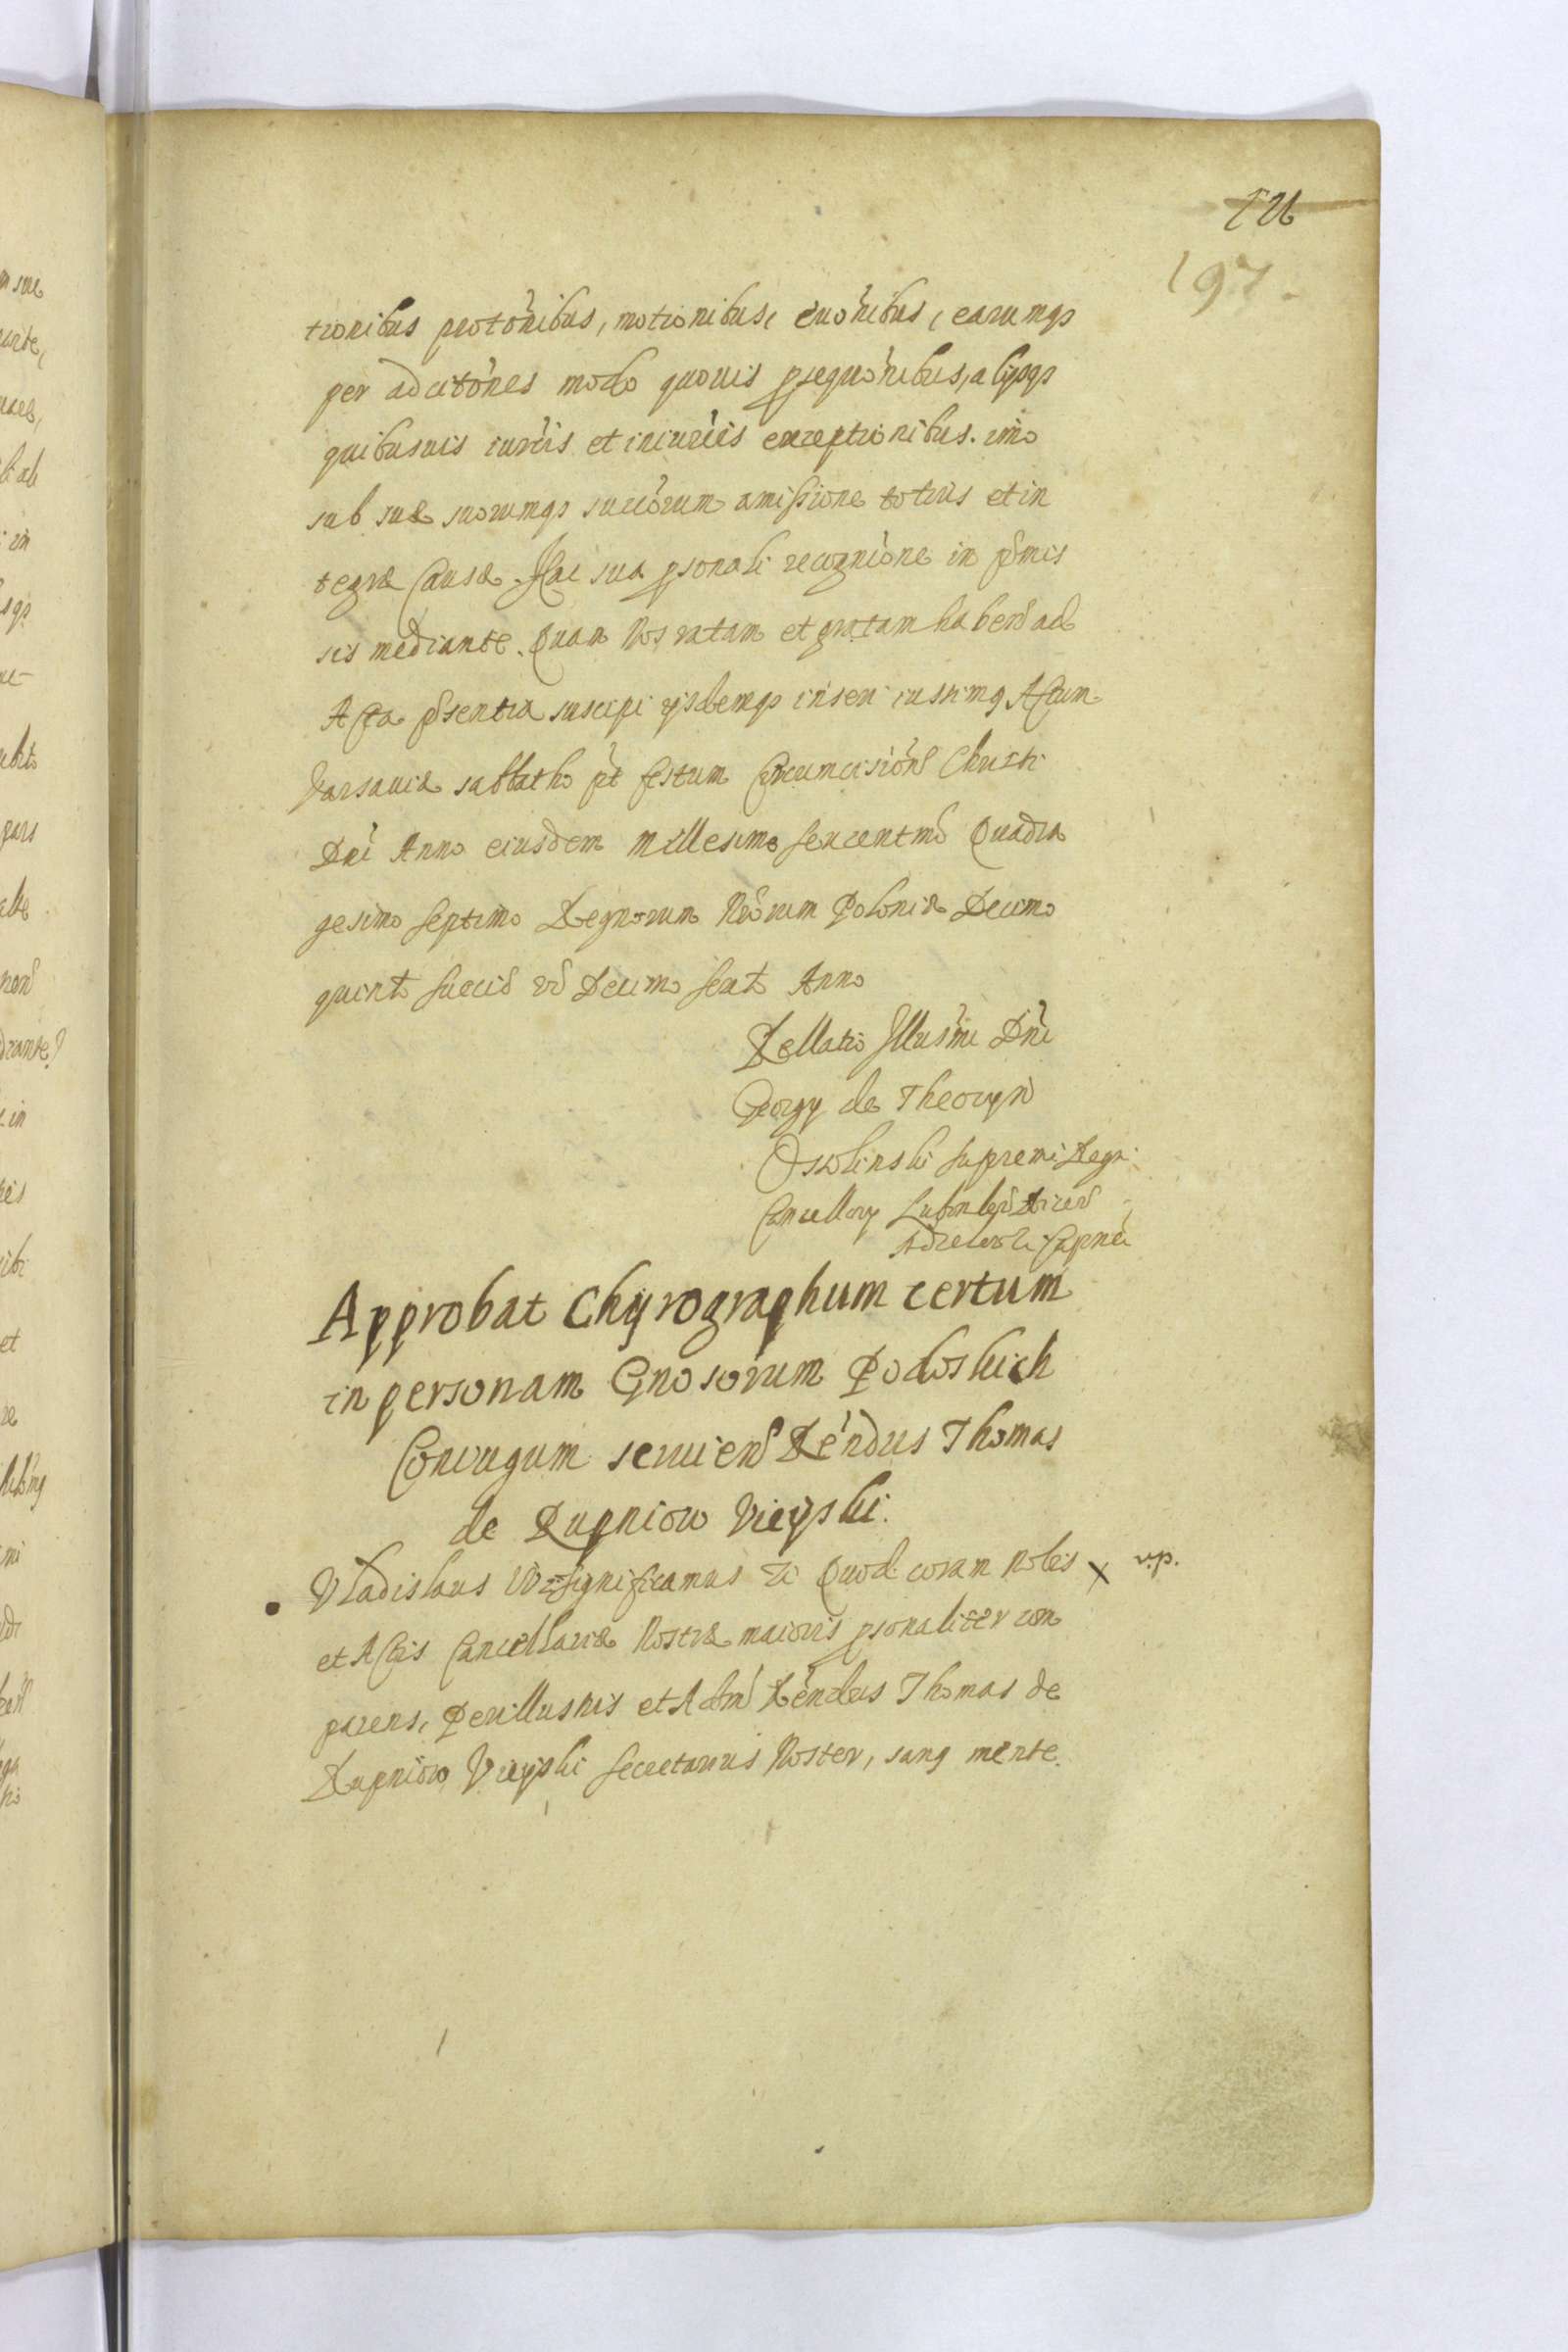 197.
tionibus motionibus, earumqs
per adcitones modo quouis aliysqs
quibusuis iuris et iniuriis exceptionibus. imo
sub suæ suorumqs succorum amissione totius et in
tegræ Causæ. Hac sua psonali recognione in pmis
sis mediante. Quam Nos ratam et gratam habend ad
Acta psentia suscipi ijsdemqs inseri iussimq Actum
Varsaviæ sabbatho pt festum Circumcisions Christi
Dni Anno eiusdem Millesimo sexcentmo Quadra
gesimo septimo Regnorum Nrorum Poloniæ Decimo
quinto Sueciæ vo Decimo sexto Anno
Rellatio Illusmi Dni
Georgy de Theczyn
Ossolinski supremi Regni
Cancellary
Approbat Chyrographum certum
in personam Gnosorum Podoskich
Coniugum seruiens Rendus Thomas
de Rupniow Uieyski.
Vladislaus IV significamus Quod coram Nobis x v.p.
et Actis Cancellariæ Nostræ maioris psonaliter com
parens, Perillustris et Adm Rendus Thomas de
Rupniow Uieyski secretarius Noster, sanq mente